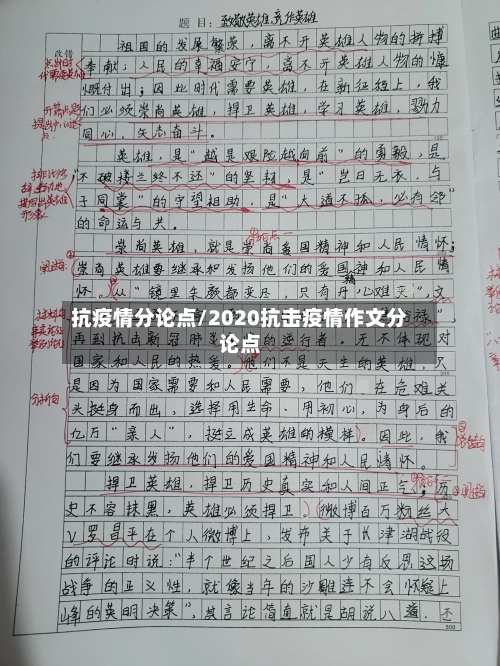 题 目：致敬英雄,亮作英雄
改错
祖国的发展繁荣，离不开英雄人物的拼搏
奉献；人民的幸福安宁，离不开英雄人物的慷
慨付出；因此时代需要英雄，在新征程上，我
们必须崇尚英雄，捍卫英雄，学习英雄，勠力
同心，矢志奋斗。
英雄，是“越是艰险越向前”的勇毅，是
“不破楼兰终不还”的坚韧，是“岂曰无衣，与
子同裳”的守望相助，是“大道不孤，必有邻”
的命运与共。
崇尚英雄，就是崇尚爱国精神和人民情怀；
崇尚英雄要继承和发扬他们的爱国精神和人民情
怀。从“镜里朱颜都变尽，只有丹心难灭”，文
抗疫情分论点/2020抗击疫情作文分
论点
再到抗击新冠肺炎的逆行者，无不体现对
国家和人民的热爱。他们不是天生的英雄，只
是因为国家需要和人民需要，他们在危难关
头挺身而出，选择用生命、用初心，为身后的
亿万“亲人”，挺立成英雄的模样。因此，我
们要继承发扬他们的爱国精神和人民情怀。
捍卫英雄，捍卫历史真实和人间正气；历
史不容抹黑，英雄必须捍卫。微博百万粉丝大
V罗昌平在个人微博上，发布关于长津湖战役
的评论时说：“半个世纪之后国人少有反思这场
战争的正义性，就像当年的沙雕连不会怀疑上
峰的英明决策”，其言论简直就是胡说八道，不